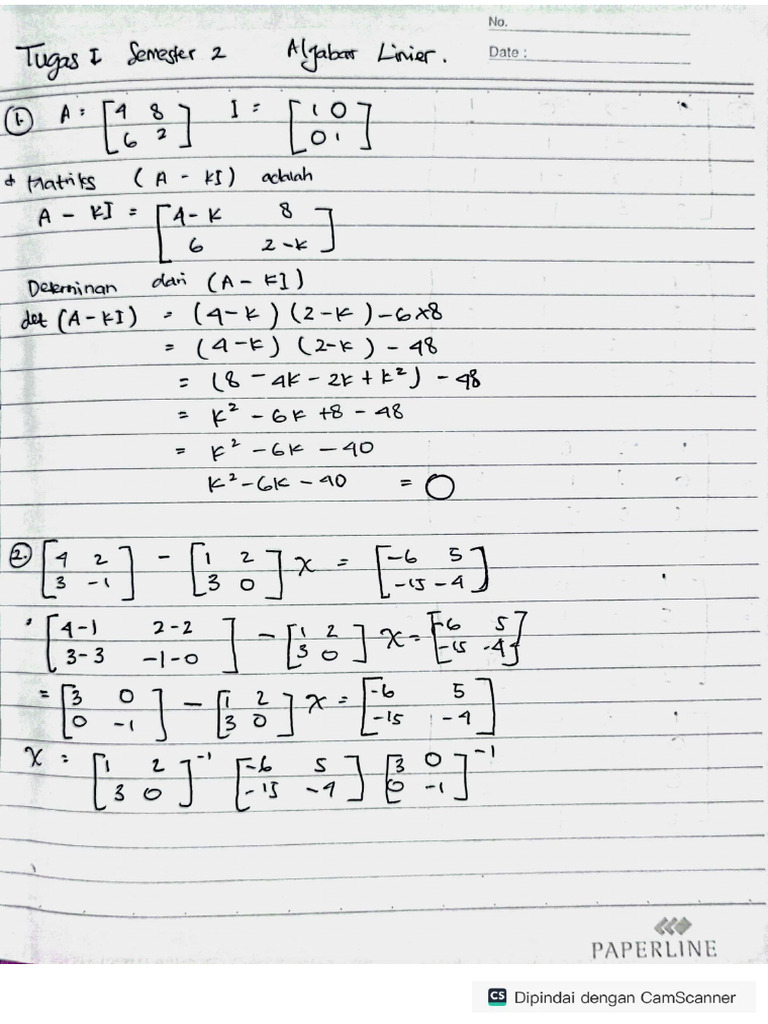 No.
Tugas I Semester 2 Aljabar Linier.
Date :
1. A = [4 8; 6 2] I = [1 0; 0 1]
Matriks (A - kI) adalah
A - kI = [4-k 8; 6 2-k]
Determinan dari (A - kI)
det (A - kI) = (4-k) (2-k) - 6x8
= (4-k) (2-k) - 48
= (8 - 4k - 2k + k²) - 48
= k² - 6k +8 - 48
= k² - 6k - 40
k² - 6k - 40 = 0
2. [4 2; 3 -1] - [1 2; 3 0] x = [-6 5; -15 -4]
[4-1 2-2; 3-3 -1-0] - [1 2; 3 0] x = [-6 5; -15 -4]
= [3 0; 0 -1] - [1 2; 3 0] x = [-6 5; -15 -4]
x = [1 2; 3 0]⁻¹ [-6 5; -15 -4] [3 0; 0 -1]⁻¹
PAPERLINE
CS Dipindai dengan CamScanner